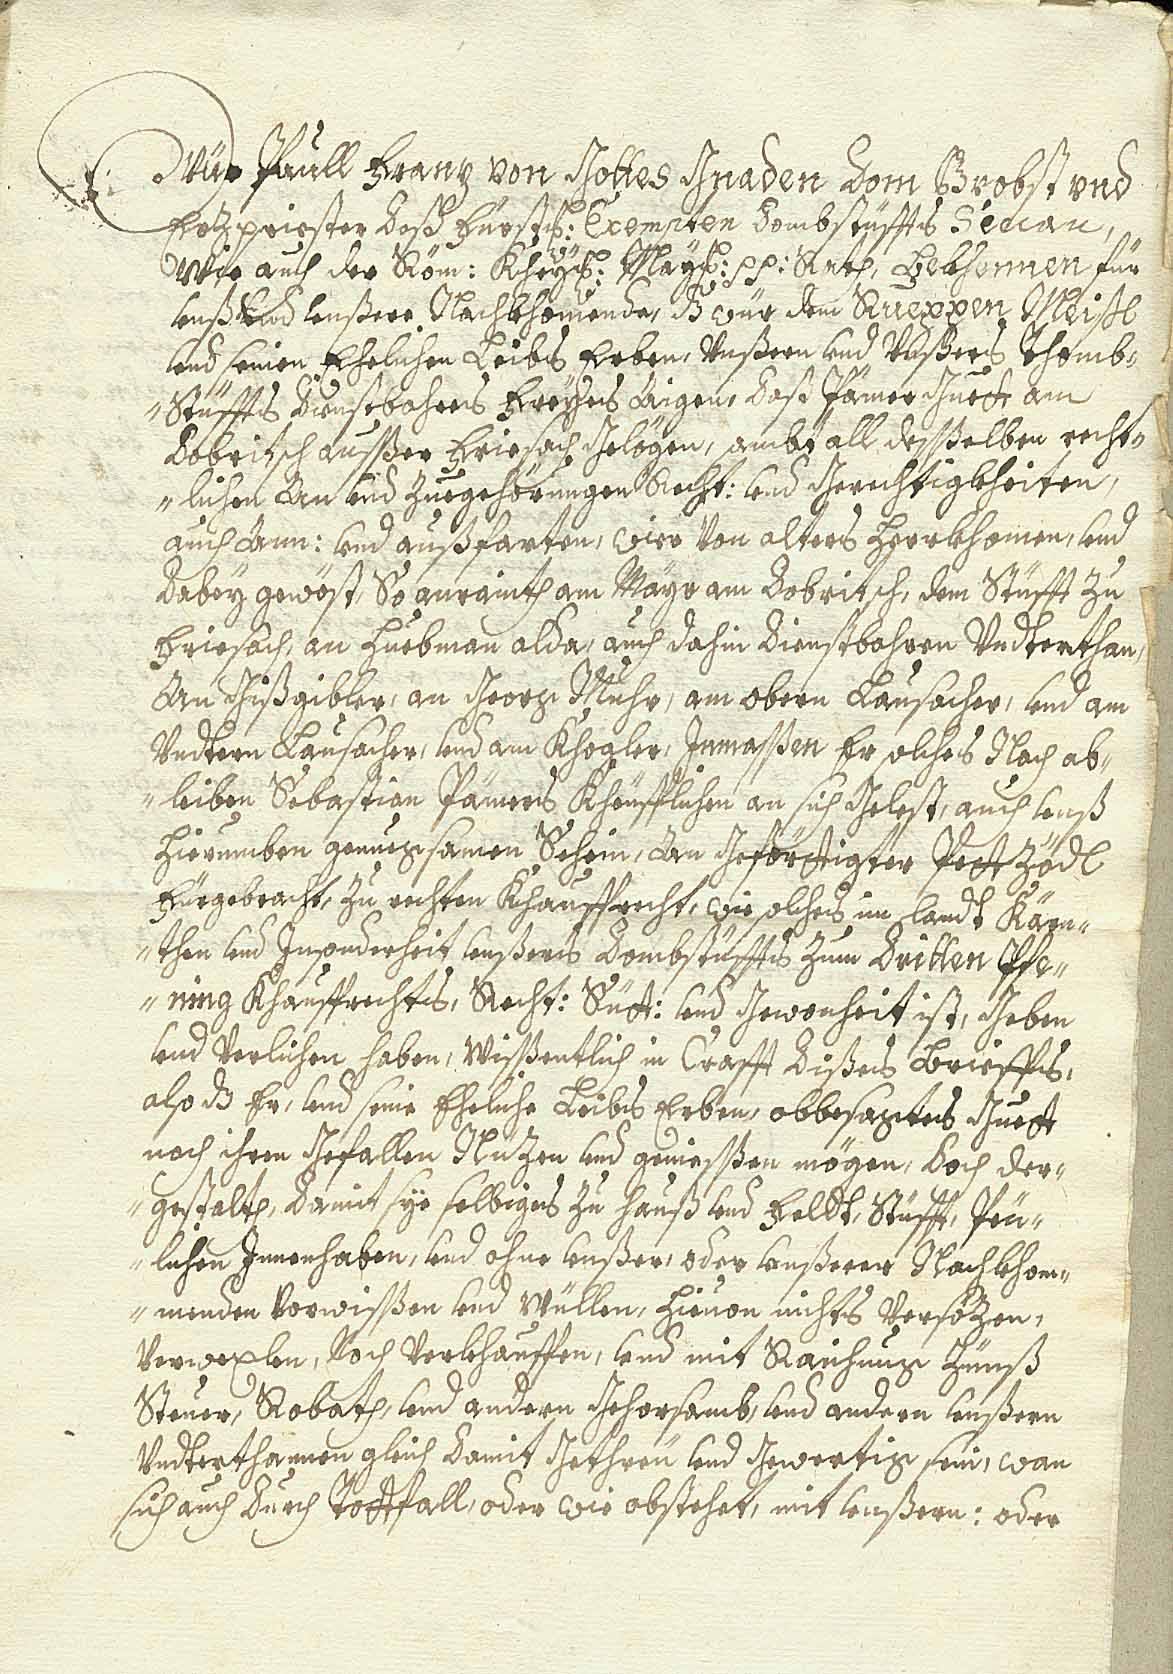 Wür Paull Franz von Gottes Gnaden Dom Brobst vnd
Ertzpriester deß Fürstl: Exempten Dombstüffts Seccau,
Wie auch der Röm: Khayl: Mayst: pp: Rath, Bekhennen für
vnß vnd vnßere Nachkhomende, dß wür dem Rueppen Meißl
vnd seinen Ehelichen Leibs Erben, Vnßern vnd Vnßers Thomb-
-Stüffts dienstbahres Freyes Aigen, daß Pämer Guett am
Dobritsch ausser Friesach Gelögen, ambt all desselben recht-
-lichen An vnd Zuegehörungen Recht: vnd Gerechtigkheiten,
auch Ann: vnd außfarten, wie von alters Herrkhomen, vnd
dabey gewöst, So anrainth am Mayr am Dobritsch, dem Stüfft zu
Friesach, an Huebman alda, auch dahin dienstbahren Vndterthan,
An Gißgibler, an Georg Muhr, am obern Lausacher, vnd am
Vndtern Lausacher, vnd am Khogler, Inmassen Er solches Nach ab-
-leiben Sebastian Pämers Kheüfflichen an sich Gelest, auch vnß
Hierumben genuegsamen Schein, An Geförttigter Pett Zödl
Fürgebracht, zu rechten Khauffrecht, wie solches im Landt Kärn-
-then vnd Insonderheit vnßers Dombstüffts zum Dritten Pfe-
-ning Khauffrechts, Recht: Sütt: vnd Gewonheit ist, Geben
vnd Verlichen haben, Wissentlich in Crafft dißes Brieffs,
also dß Er, vnd seine Eheliche Leibs Erben, obbesagtes Guett
nach ihren Gefallen Nutzen vnd geniessen mögen, doch der-
-gestalth, damit sye selbiges zu hauß vnd Feldt, Stüfft, Peü-
-lichen Innenhaben, vnd ohne vnßer, oder vnßerer Nachkhom-
-menden Vorwissen vnd Wüllen, Hieuon nichts Versötzen,
Verwexlen, Noch Verkhauffen, vnd mit Raichung Zünß
Steuer, Robath, vnd andern Gehorsamb, vnd andern vnßern
Vndterthannen gleich damit Gethreü vnd Gewertig sein, wan
sich auch durch Todtfall, oder wie obstehet, mit vnßern: oder